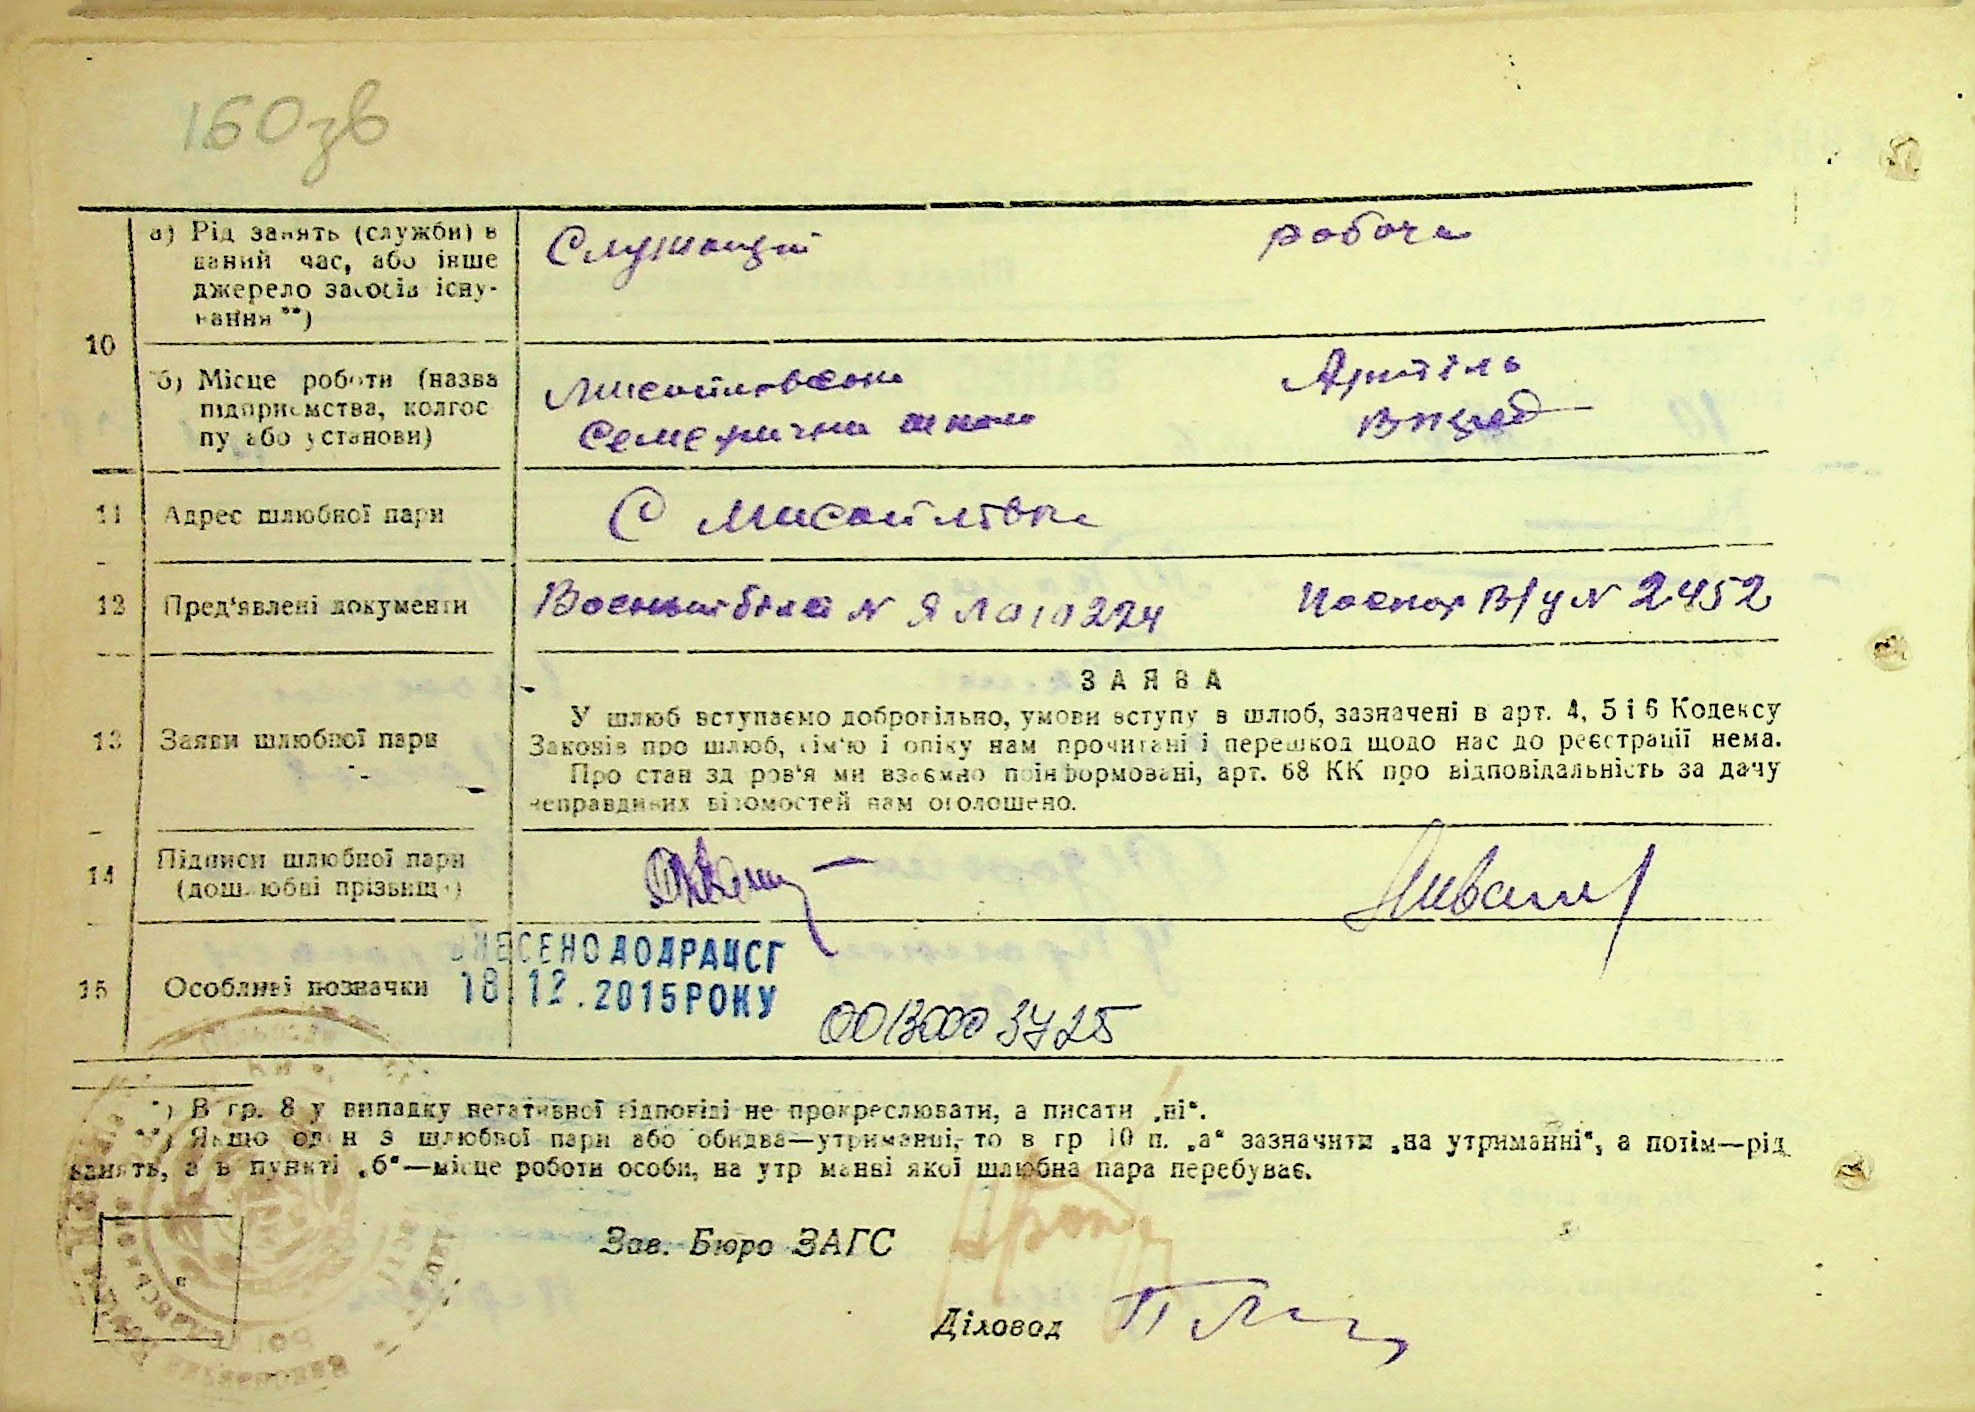 160зв
а) Рід занять (служби) в
даний час, або інше
джерело засобів існу-
вання **)
Служащий
робоча
10
б) Місце роботи (назва
підприємства, колгос
пу або установи)
Мисайловська
Семерична школа
Артіль
Вперед
11 Адрес шлюбної пари
С Мисайлівка
12 Пред'явлені документи
Воєнный білет N
Паспорт В/у N 2452
13 Заяви шлюбної пари
ЗАЯВА
У шлюб вступаємо добровільно, умови вступу в шлюб, зазначені в арт. 4, 5 і 6 Кодексу
Законів про шлюб, сім'ю і опіку нам прочитані і перешкод щодо нас до реєстрації нема.
Про стан здоров'я ми взаємно поінформовані, арт. 68 КК про відповідальність за дачу
неправдивих відомостей нам оголошено.
14 Підписи шлюбної пари
(дошлюбні прізвища)
15 Особливі позначки
ВНЕСЕНО ДО ДРАЦСГ
18.12.2015 РОКУ
00130003725
*) В гр. 8 у випадку негативної відповіді не прокреслювати, а писати „ні“.
**) Якщо один з шлюбної пари або обидва—утриманці, то в гр 10 п. „а“ зазначити „на утриманні“, а потім—рід
занять, а в пункті „б“—місце роботи особи, на утриманні якої шлюбна пара перебуває.
Зав. Бюро ЗАГС
Діловод